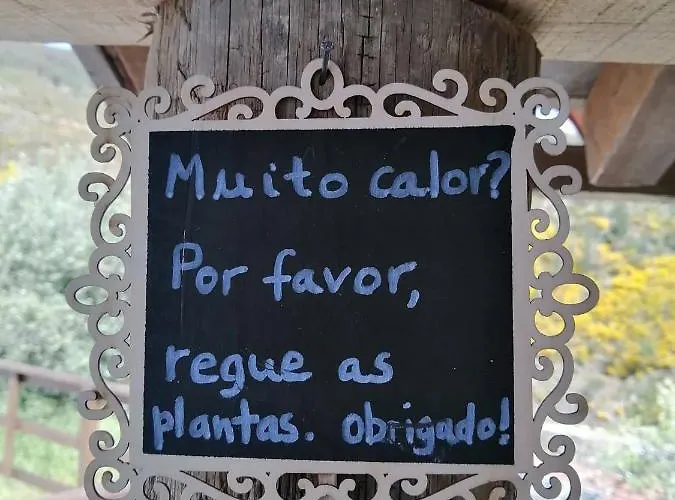 Muito calor?
Por favor,
regue as
plantas. Obrigado!